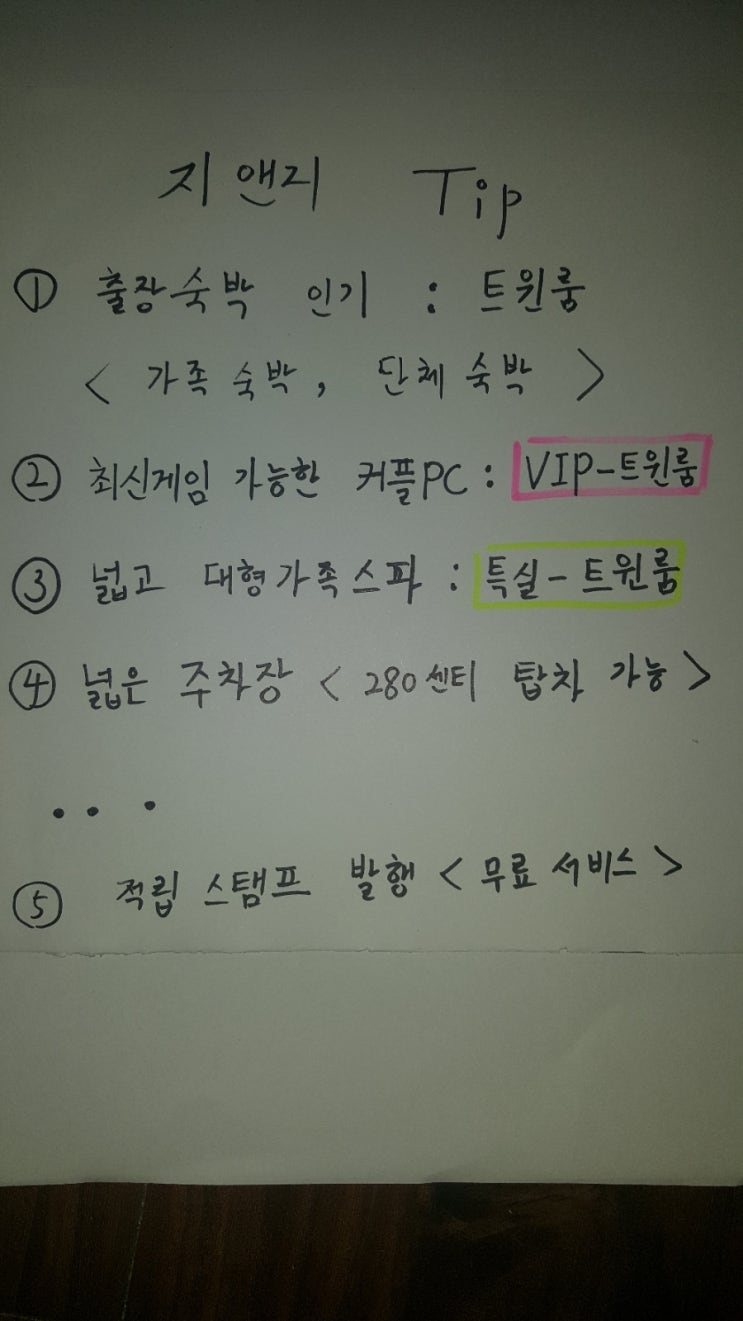 지앤지 Tip
① 출장숙박 인기 : 트윈룸
< 가족숙박, 단체 숙박 >
② 최신게임 가능한 커플PC : VIP-트윈룸
③ 넓고 대형가족스파 : 특실-트윈룸
④ 넓은 주차장 < 280센티 탑차 가능 >
• • •
⑤ 적립 스탬프 발행 < 무료 서비스 >